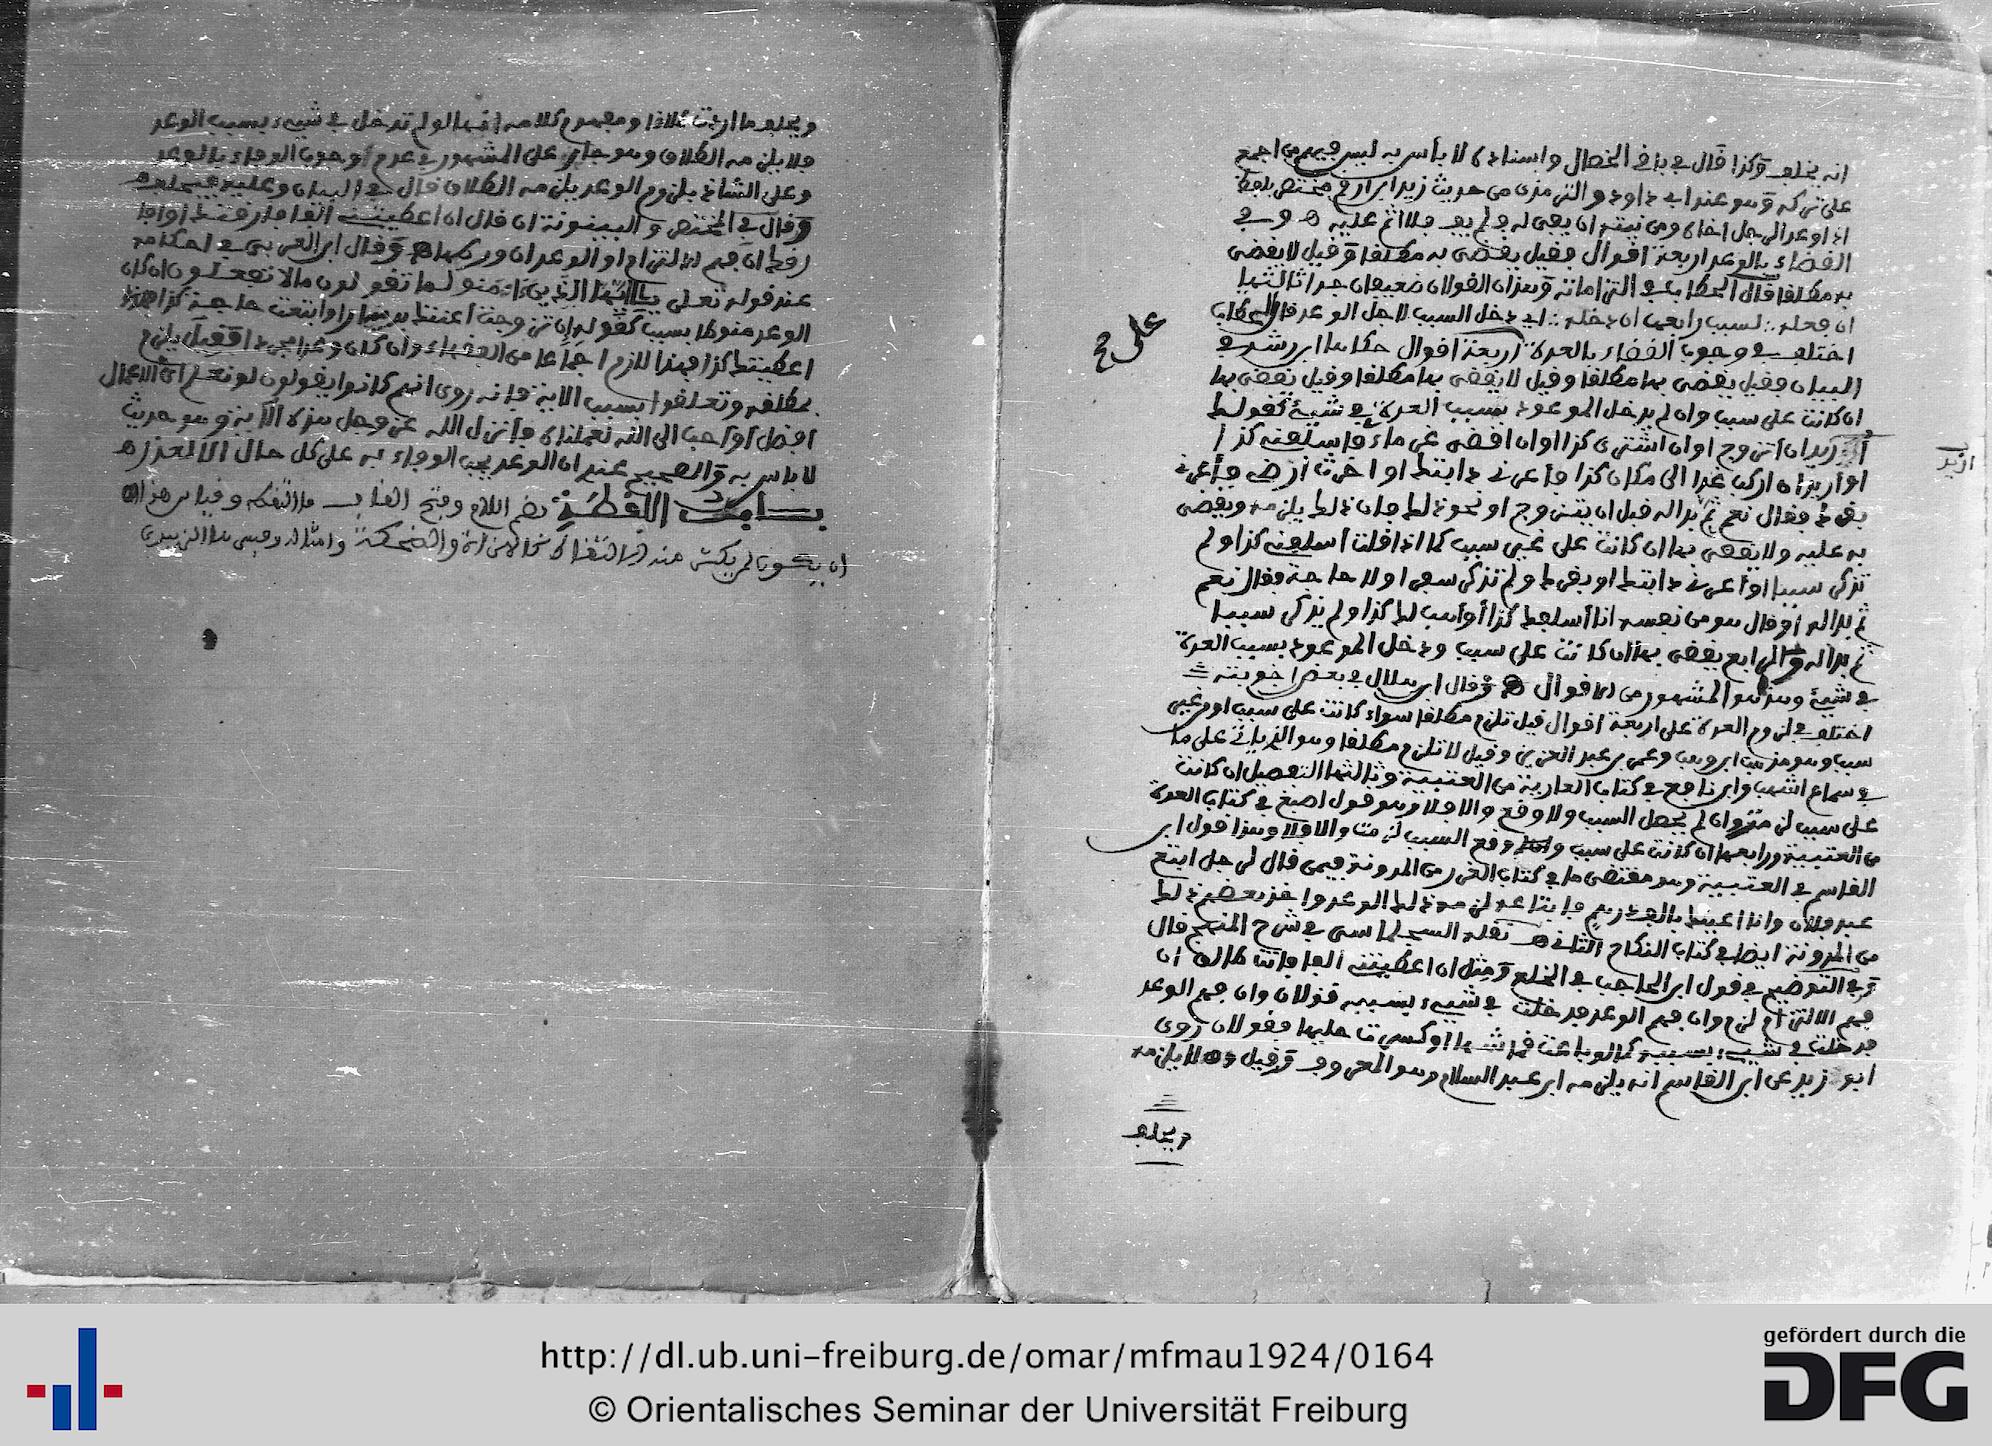 انه يخلف وكذا قال في باقي الخصال واسناده لا بأس به ليس فيهم من اجمع
على تركه وهو عند ابي داود والترمذي من حديث زيد ابن ارقم مختصر بلفظ
اذا وعد الرجل اخاه ومن نيته ان يفي له ولم يف فلا اثم عليه ه و في
القضاء بالوعد اربعة اقوال فقيل يقضى به مطلقا وقيل لا يقضى
به مطلقا قال الحطاب في التزاماته وهذان القولان ضعيفان جدا ثالثها
ان فعله لسبب رابعها ان دخله اي دخل السبب لاجل الوعد قال الحطاب
اختلف في وجوب القضاء بالعدة اربعة اقوال حكاها ابن رشد في
البيان فقيل يقضى بها مطلقا وقيل لا يقضى بها مطلقا وقيل يقضى بها
ان كانت على سبب وان لم يدخل الموعود بسبب العدة في شيء كقولك
اريد ان اتزوج او ان اشتري كذا او ان اقضي غرماءي فاسلفني كذا
او اريد ان اركب غدا الى مكان كذا فأعرني دابتك او احرث ارضي فأعرني
بقرك فقال نعم ثم بدا له قبل ان يتزوج او نحو ذلك فان ذلك يلزمه ويقضى
به عليه ولا يقضى بها ان كانت على غير سبب كما اذا قلت أسلفني كذا ولم
تذكر سببا او أعرني دابتك او بقرك ولم تذكر سفرا ولا حاجة فقال نعم
ثم بدا له أو قال هو من نفسه انا أسلفك كذا أو أهب لك كذا ولم يذكر سببا
ثم بدا له والرابع يقضى بها ان كانت على سبب ودخل الموعود بسبب العدة
في شيء وهذا هو المشهور من الاقوال ه وقال ابن هلال في بعض اجوبته
اختلف في لزوم العدة على اربعة اقوال قيل تلزم مطلقا سواء كانت على سبب او من غير
سبب وهو مذهب ابن وهب وعمر بن عبد العزيز وقيل لا تلزم مطلقا وهو الذي ياتي على ما
في سماع اشهب وابن نافع في كتاب العارية من العتبية وثالثها التفصيل ان كانت
على سبب لزمت وان لم يحصل السبب ولا وقع والا فلا وهو قول اصبغ في كتاب العدة
من العتبية ورابعها ان كانت على سبب ووقع السبب لزمت والا فلا وهذا قول ابن
القاسم في العتبية وهو مقتضى ما في كتاب الغرر من المدونة فيمن قال لرجل ابتع
عبد فلان وانا اعينك بالف درهم فابتاعه لزمه ذلك الوعد واخذ بعضهم ذلك
من المدونة ايضا في كتاب النكاح الثاني ه نقله السجلماسي في شرح المنهج قال
وفي التوضيح في قول ابن الحاجب في الخلع ومثل ان اعطيتني الفا فانت طالق ان
فهم الالتزام لزم وان فهم الوعد فدخلت في شيء بسببه قولان وان فهم الوعد
فدخلت في شيء بسببه كما لو باعت قماشها او كسرت حليها فقولان روى
ابو زيد عن ابن القاسم انه يلزمه ابن عبد السلام وهو المعروف وقيل لا يلزمه
ويحلف
اريد
ويحلف ما اردت طلاقا ومفهوم كلامه انها لو لم تدخل في شيء بسبب الوعد
فلا يلزمه الطلاق وهو جار على المشهور في عدم وجوب الوفاء بالوعد
وعلى الشاذ بلزوم الوعد يلزمه الطلاق قال في البيان وعليه فيحلف ه
وقال في المختصر والبينونة ان قال ان اعطيتني الفا فارقتك او افا
رقك ان فهم الالتزام او الوعد ان ورطها ه وقال ابن العربي في احكامه
عند قوله تعلى يا ايها الذين ءامنوا لم تقولون ما لا تفعلون ان كان
الوعد منوطا بسبب كقوله ان تزوجت أعنتك بدينار او ابتعت حاجة كذا
اعطيتك كذا فهذا لازم اجماعا من الفقهاء وان كان وعدا مجردا فقيل يلزم
بمطلقه وتعلقوا بسبب الاية فإنه روى انهم كانوا يقولون لو نعلم اي الاعمال
افضل او احب الى الله لعملناه فأنزل الله عز وجل هذه الآية وهو حديث
لا باس به والصحيح عندي ان الوعد يجب الوفاء به على كل حال الا لعذر ه
بضم اللام وفتح القاف ما التقطه وقياس هذا